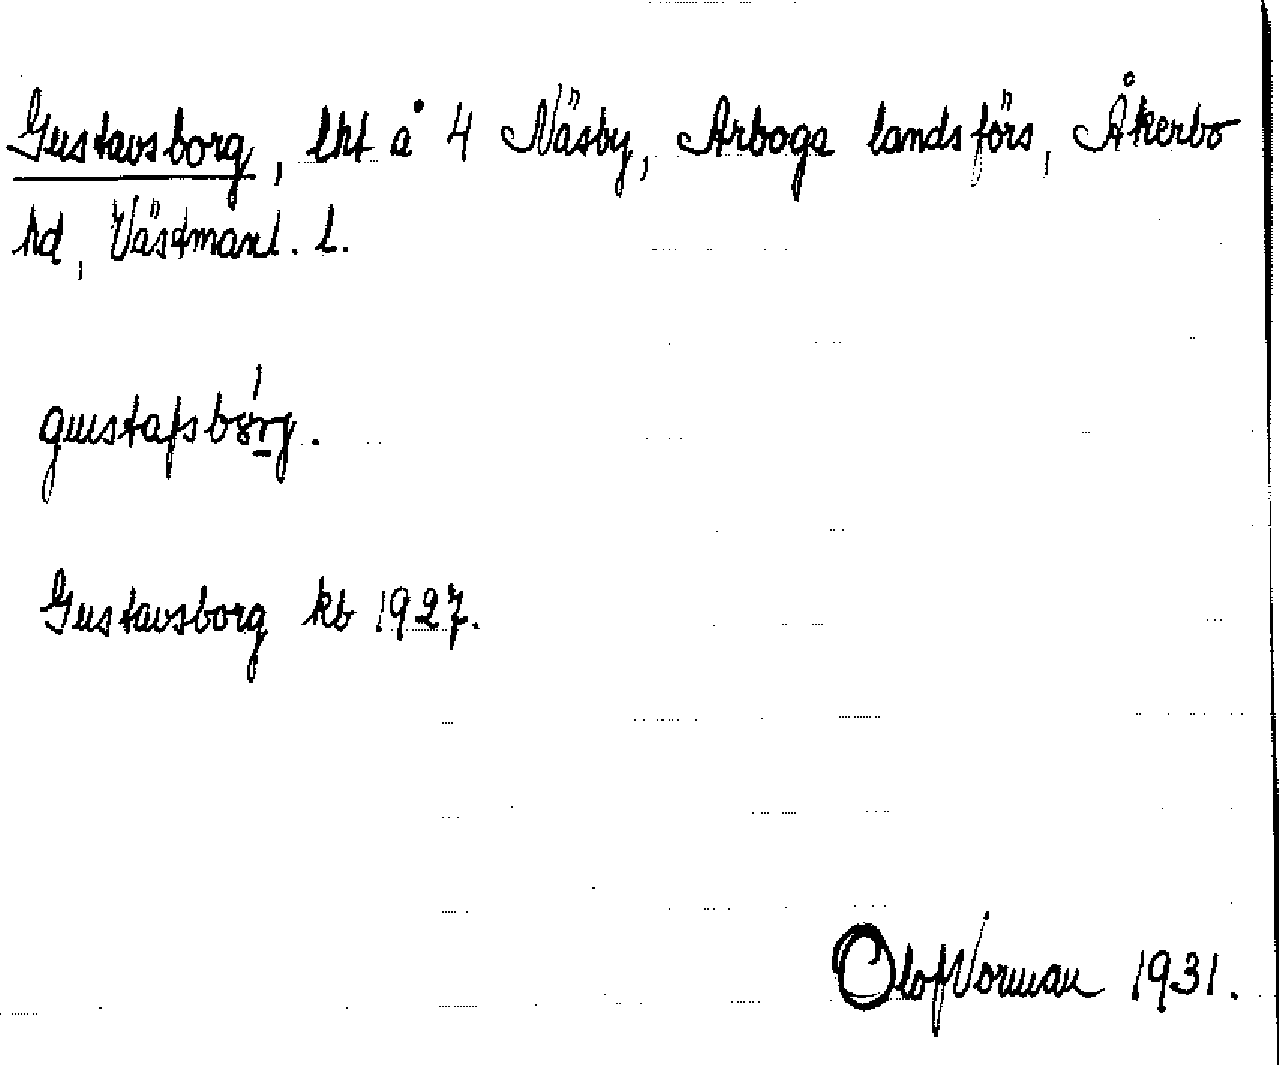 Gustavsborg, lht å 4 Näsby, Arboga landsförs, Åkerbo
hd, Västmanl. l.
gustafsbórg.
Gustavsborg kb 1927.
Olof Norman 1931.